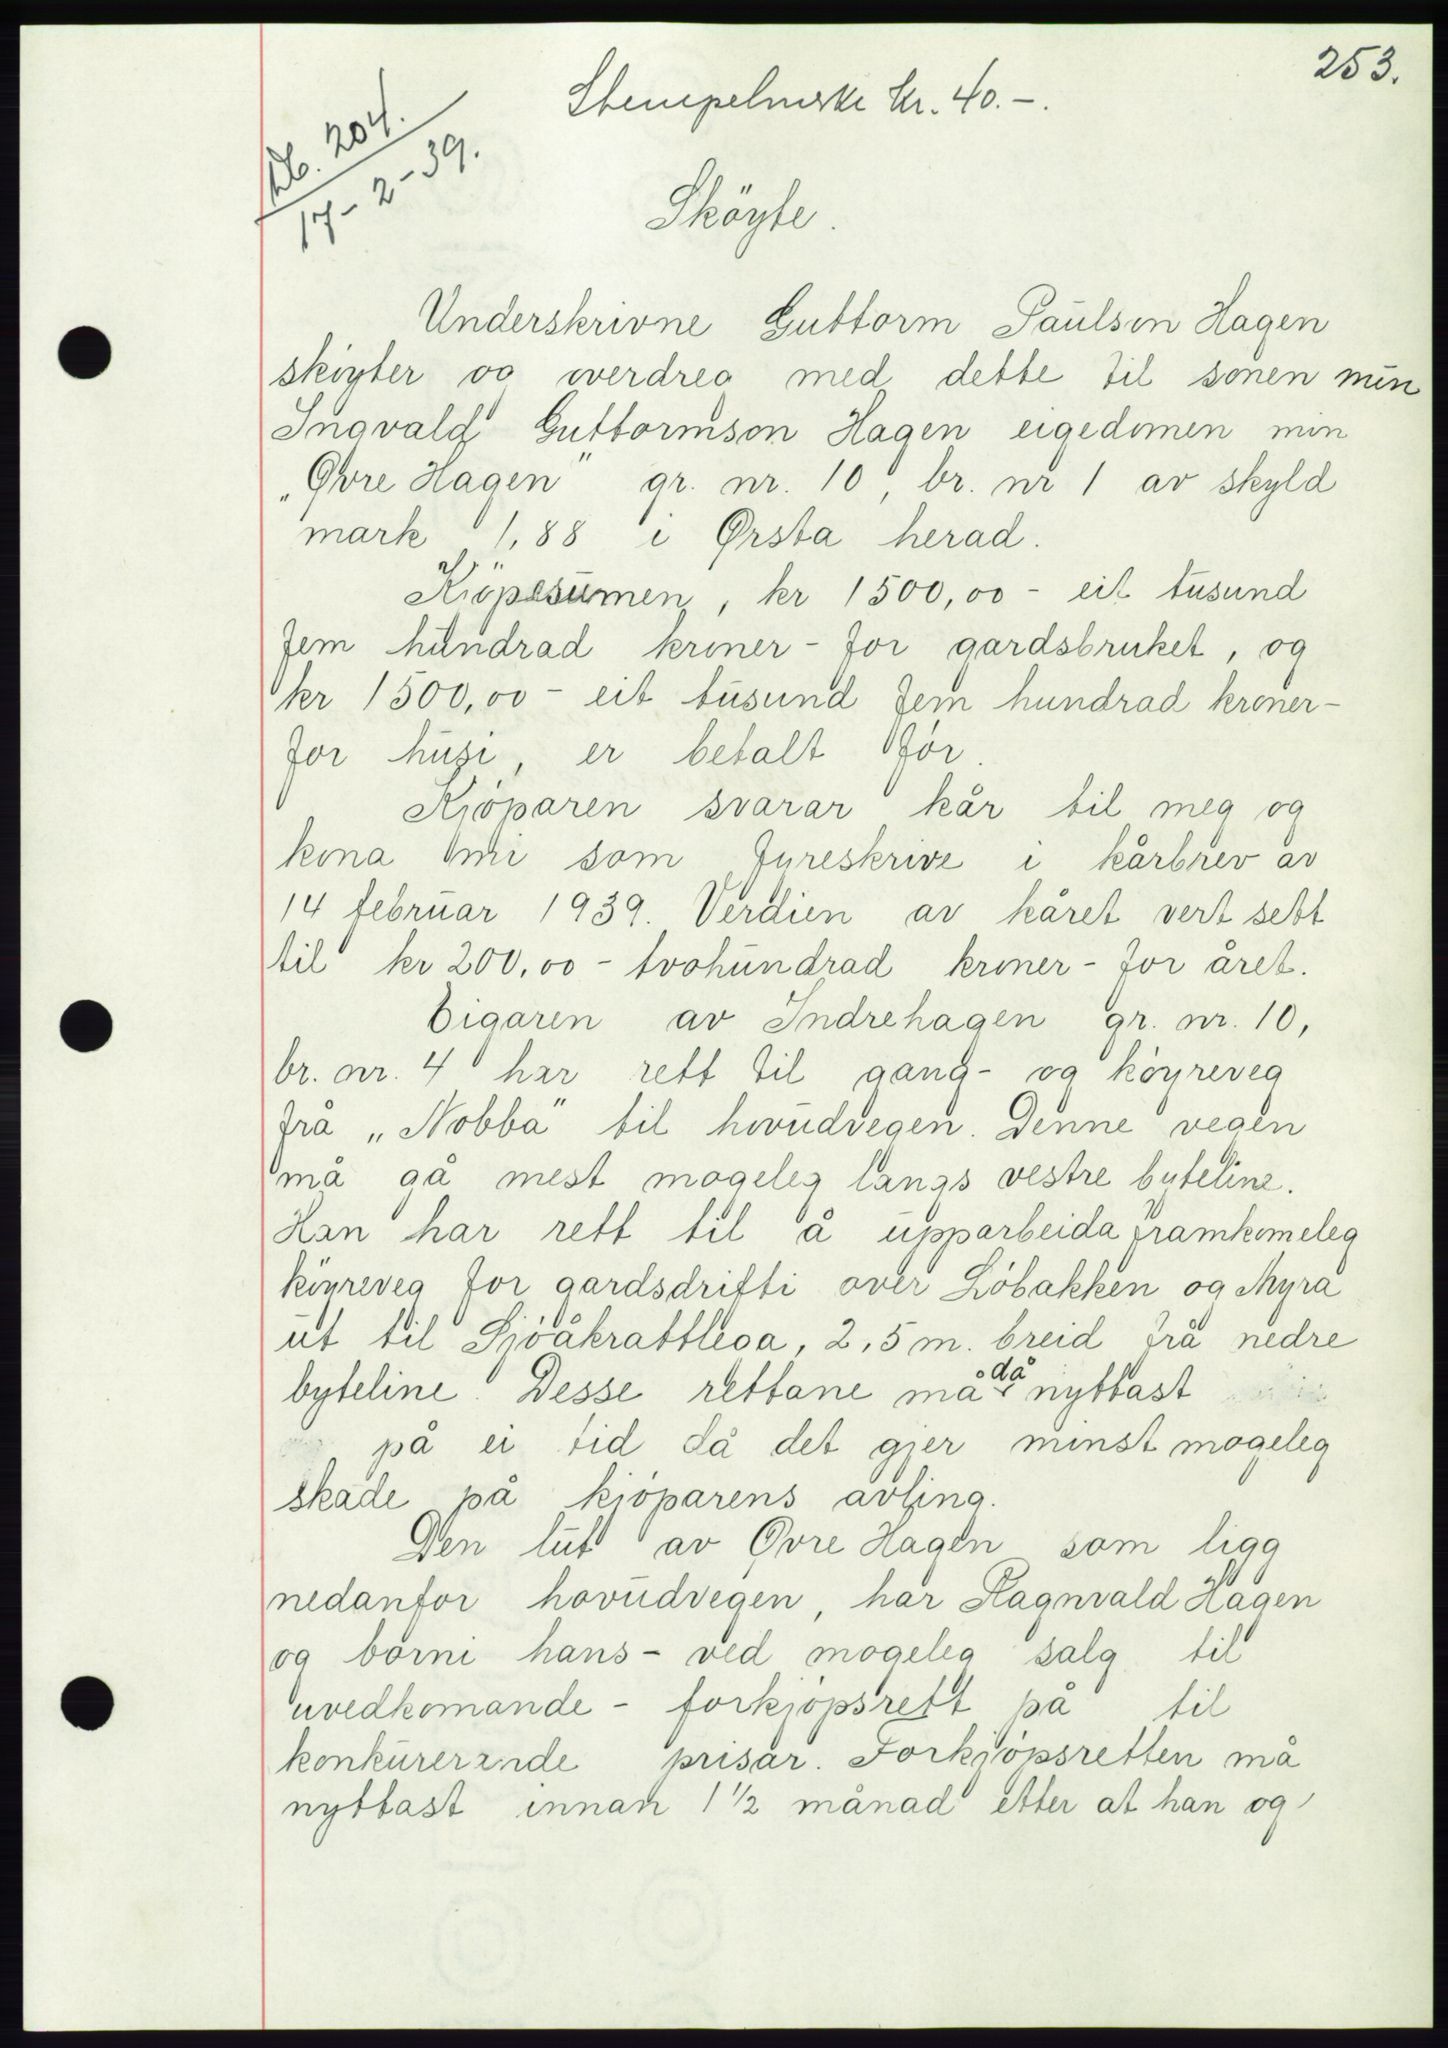 253.
Stempelmerke kr. 40.-.
Db. 204.
17-2-39.
Sköyte.
Underskrivne Guttorm Paulson Hagen
sköyter og overdreg med dette til sonen min
Ingvald Guttormson Hagen eigedomen min
„Øvre Hagen" gr. nr. 10, br. nr 1 av skyld
mark 1,88 i Ørsta herad.
Kjöpesumen, kr 1500,00 - eit tusund
fem hundrad kroner - for gardsbruket, og
kr 1500,00 - eit tusund fem hundrad kroner-
for husi, er betalt för.
Kjöparen svarar kår til meg og
kona mi som fyreskrive i kårbrev av
14 februar 1939. Verdien av kåret vert sett
til kr 200,00 - tvohundrad kroner - for året.
Eigaren av Indrehagen gr. nr. 10,
br. nr. 4 har rett til gang- og köyreveg
frå „Nobba" til hovudvegen. Denne vegen
må gå mest mogeleg langs vestre byteline.
Han har rett til å upparbeida framkomeleg
köyreveg for gardsdrifti over Löbakken og Myra
ut til Sjöåkrattlega, 2,5 m. breid frå nedre
byteline. Desse rettane må då nyttast
på ei tid då det gjer minst mogeleg
skade på kjöparens avling.
Den lut av Øvre Hagen som ligg
nedanfor hovudvegen, har Ragnvald Hagen
og borni hans - ved mogeleg salg til
uvedkomande - forkjöpsrett på til
konkurerande prisar. Forkjöpsretten må
nyttast innan 1 1/2 månad etter at han og